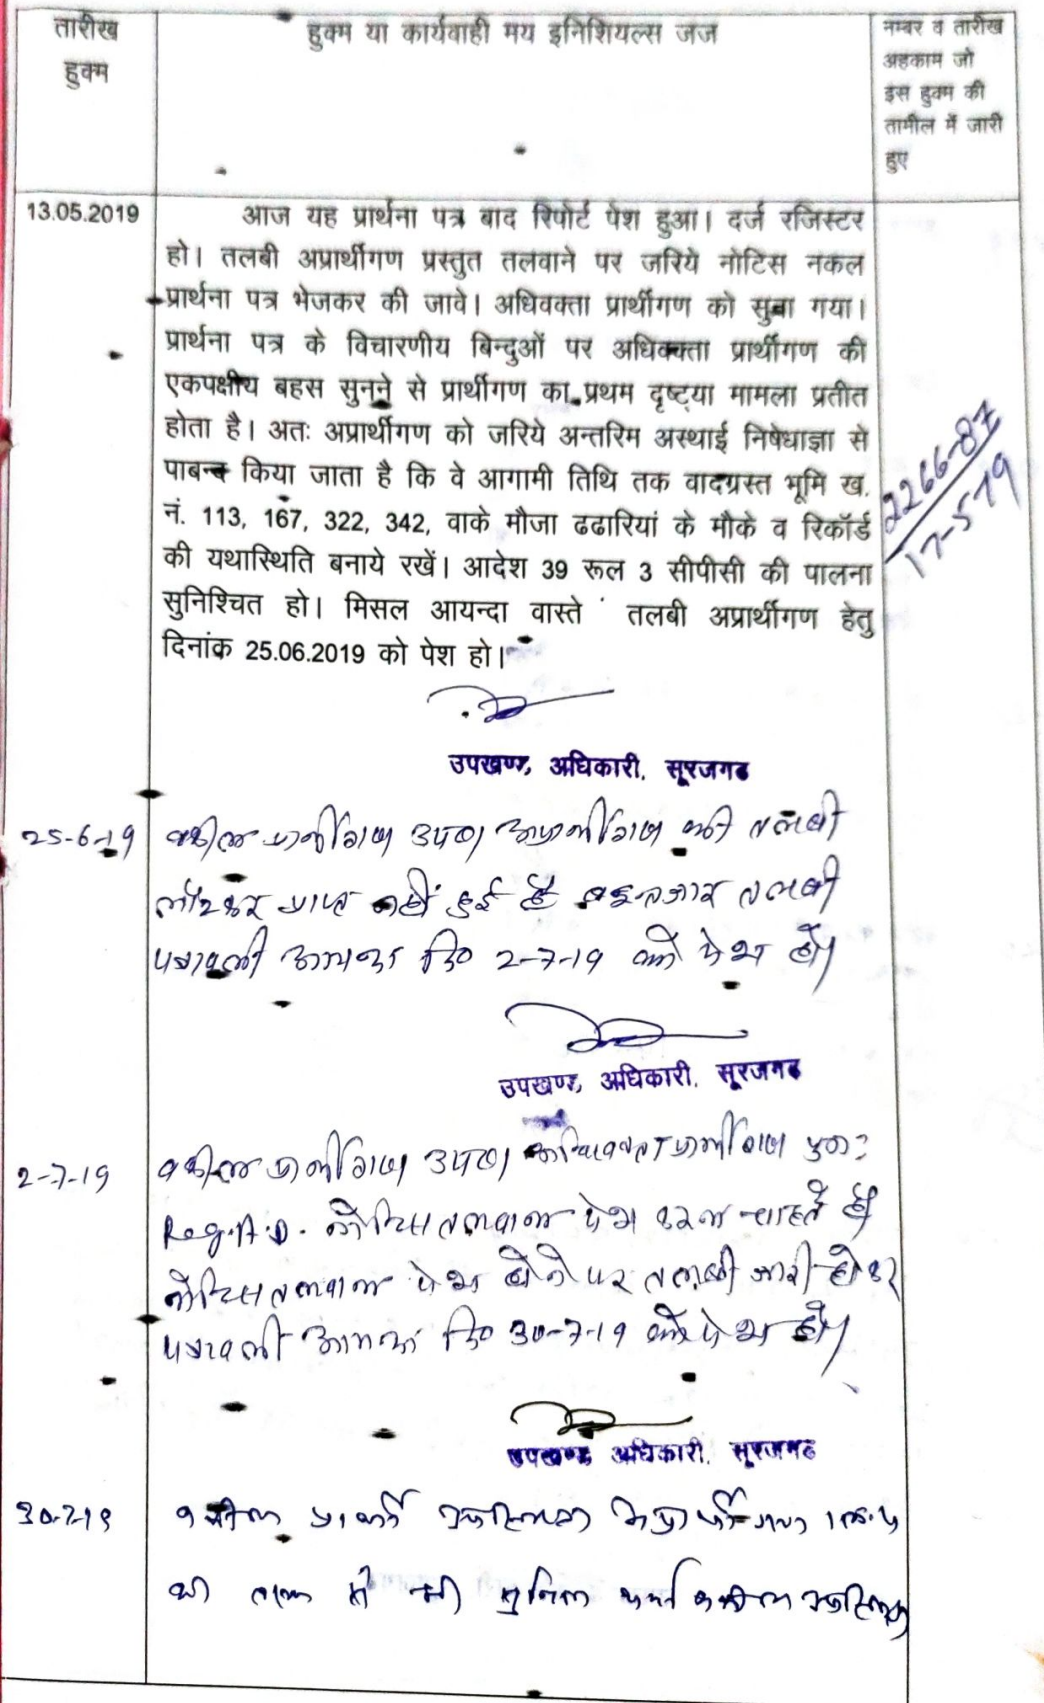 तारीख
हुक्म
हुक्म या कार्यवाही मय इनिशियल्स जज
नम्बर व तारीख
अहकाम जो
इस हुक्म की
तामील में जारी
हुए
13.05.2019
आज यह प्रार्थना पत्र बाद रिपोर्ट पेश हुआ। दर्ज रजिस्टर
हो। तलबी अप्रार्थीगण प्रस्तुत तलवाने पर जरिये नोटिस नकल
प्रार्थना पत्र भेजकर की जावे। अधिवक्ता प्रार्थीगण को सुना गया।
प्रार्थना पत्र के विचारणीय बिन्दुओं पर अधिवक्ता प्रार्थीगण की
एकपक्षीय बहस सुनने से प्रार्थीगण का प्रथम दृष्ट्या मामला प्रतीत
होता है। अतः अप्रार्थीगण को जरिये अन्तरिम अस्थाई निषेधाज्ञा से
पाबन्द किया जाता है कि वे आगामी तिथि तक वादग्रस्त भूमि ख.
नं. 113, 167, 322, 342, वाके मौजा ढढारियां के मौके व रिकॉर्ड
की यथास्थिति बनाये रखें। आदेश 39 रूल 3 सीपीसी की पालना
सुनिश्चित हो। मिसल आयन्दा वास्ते तलबी अप्रार्थीगण हेतु
दिनांक 25.06.2019 को पेश हो।
2266-87
17-5-19
उपखण्ड अधिकारी, सूरजगढ
25-6-19
वकील प्रार्थीगण उप0। अप्रार्थीगण की तलबी
लौटकर प्राप्त नहीं हुई है इन्तजार तलबी
पत्रावली आयन्दा दि0 2-7-19 को पेश हो।
उपखण्ड अधिकारी, सूरजगढ
2-7-19
वकील प्रार्थीगण उप0। अधिवक्ता प्रार्थीगण पुनः
Reg.A.D. नोटिस तलवाना पेश करना चाहते है।
नोटिस तलवाना पेश होने पर तलबी जारी होकर
पत्रावली आयन्दा दि0 30-7-19 को पेश हो।
उपखण्ड अधिकारी, सूरजगढ
30-7-19
वकील प्रार्थी उपस्थित अप्रार्थीगण
की में वकील उपस्थित